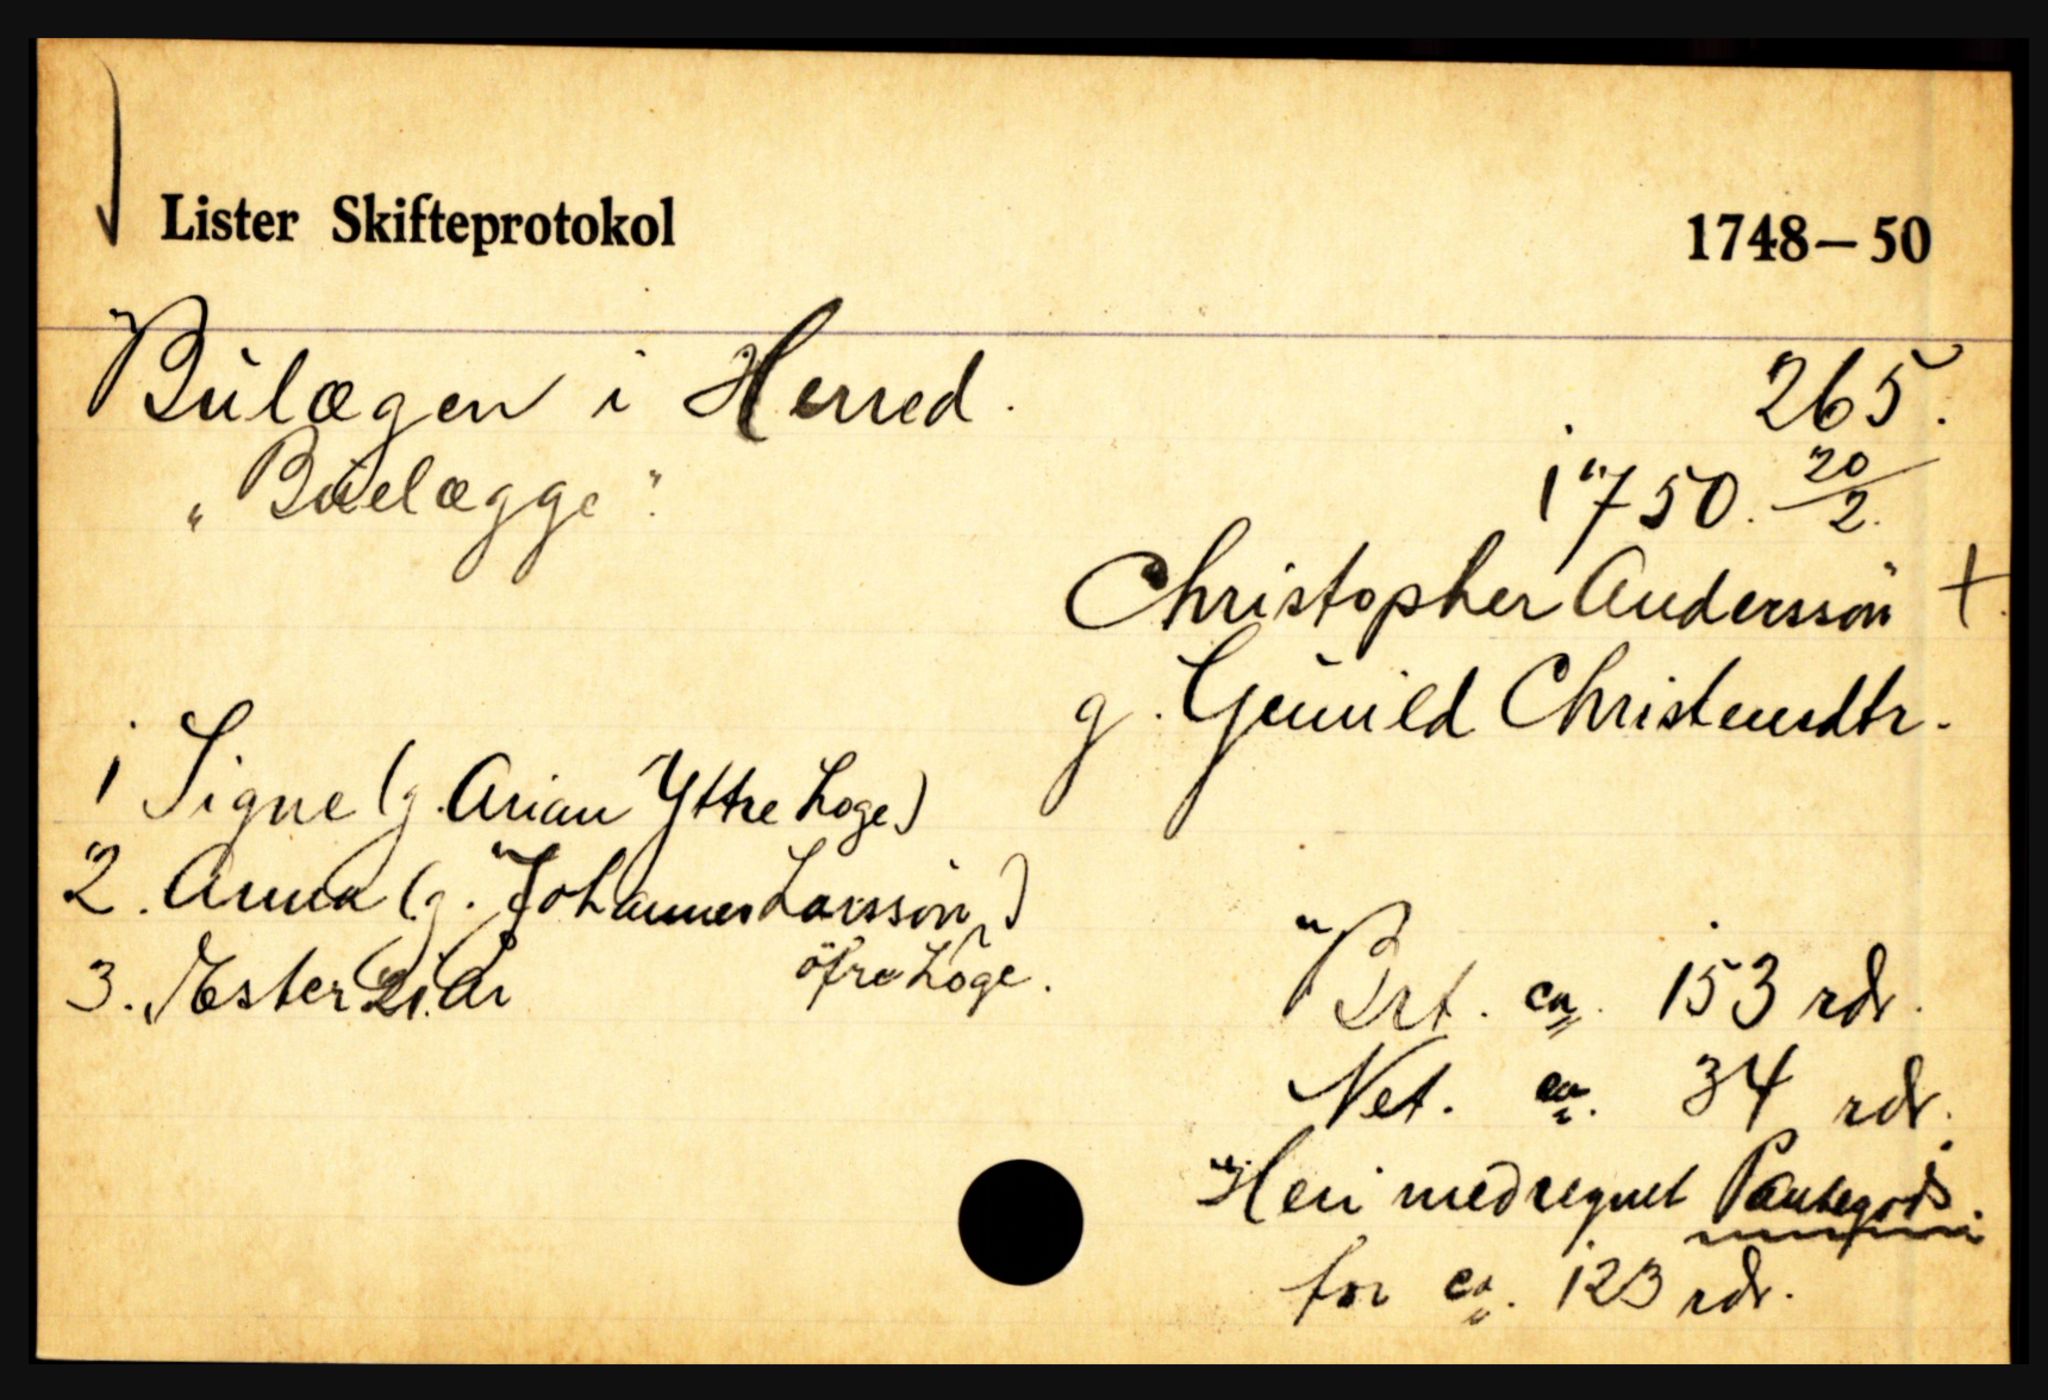 Lister Skifteprotokol 1748–50
Búlægen i Herred. 265.
„Buelægge". 1750. 20/2.
Christopher Anderssøn †.
g. Gunild Christensdtr.
1 Signe (g. Arian Yttre Loge)
2. Anna (g. Johannes Larssøn,)
öfre Loge.
3. Æster 21. år
Brt. ca. 153 rdr.
Net. ca. 34 rdr.
Heri medregnet Pantegods
for ca. 123 rdr.